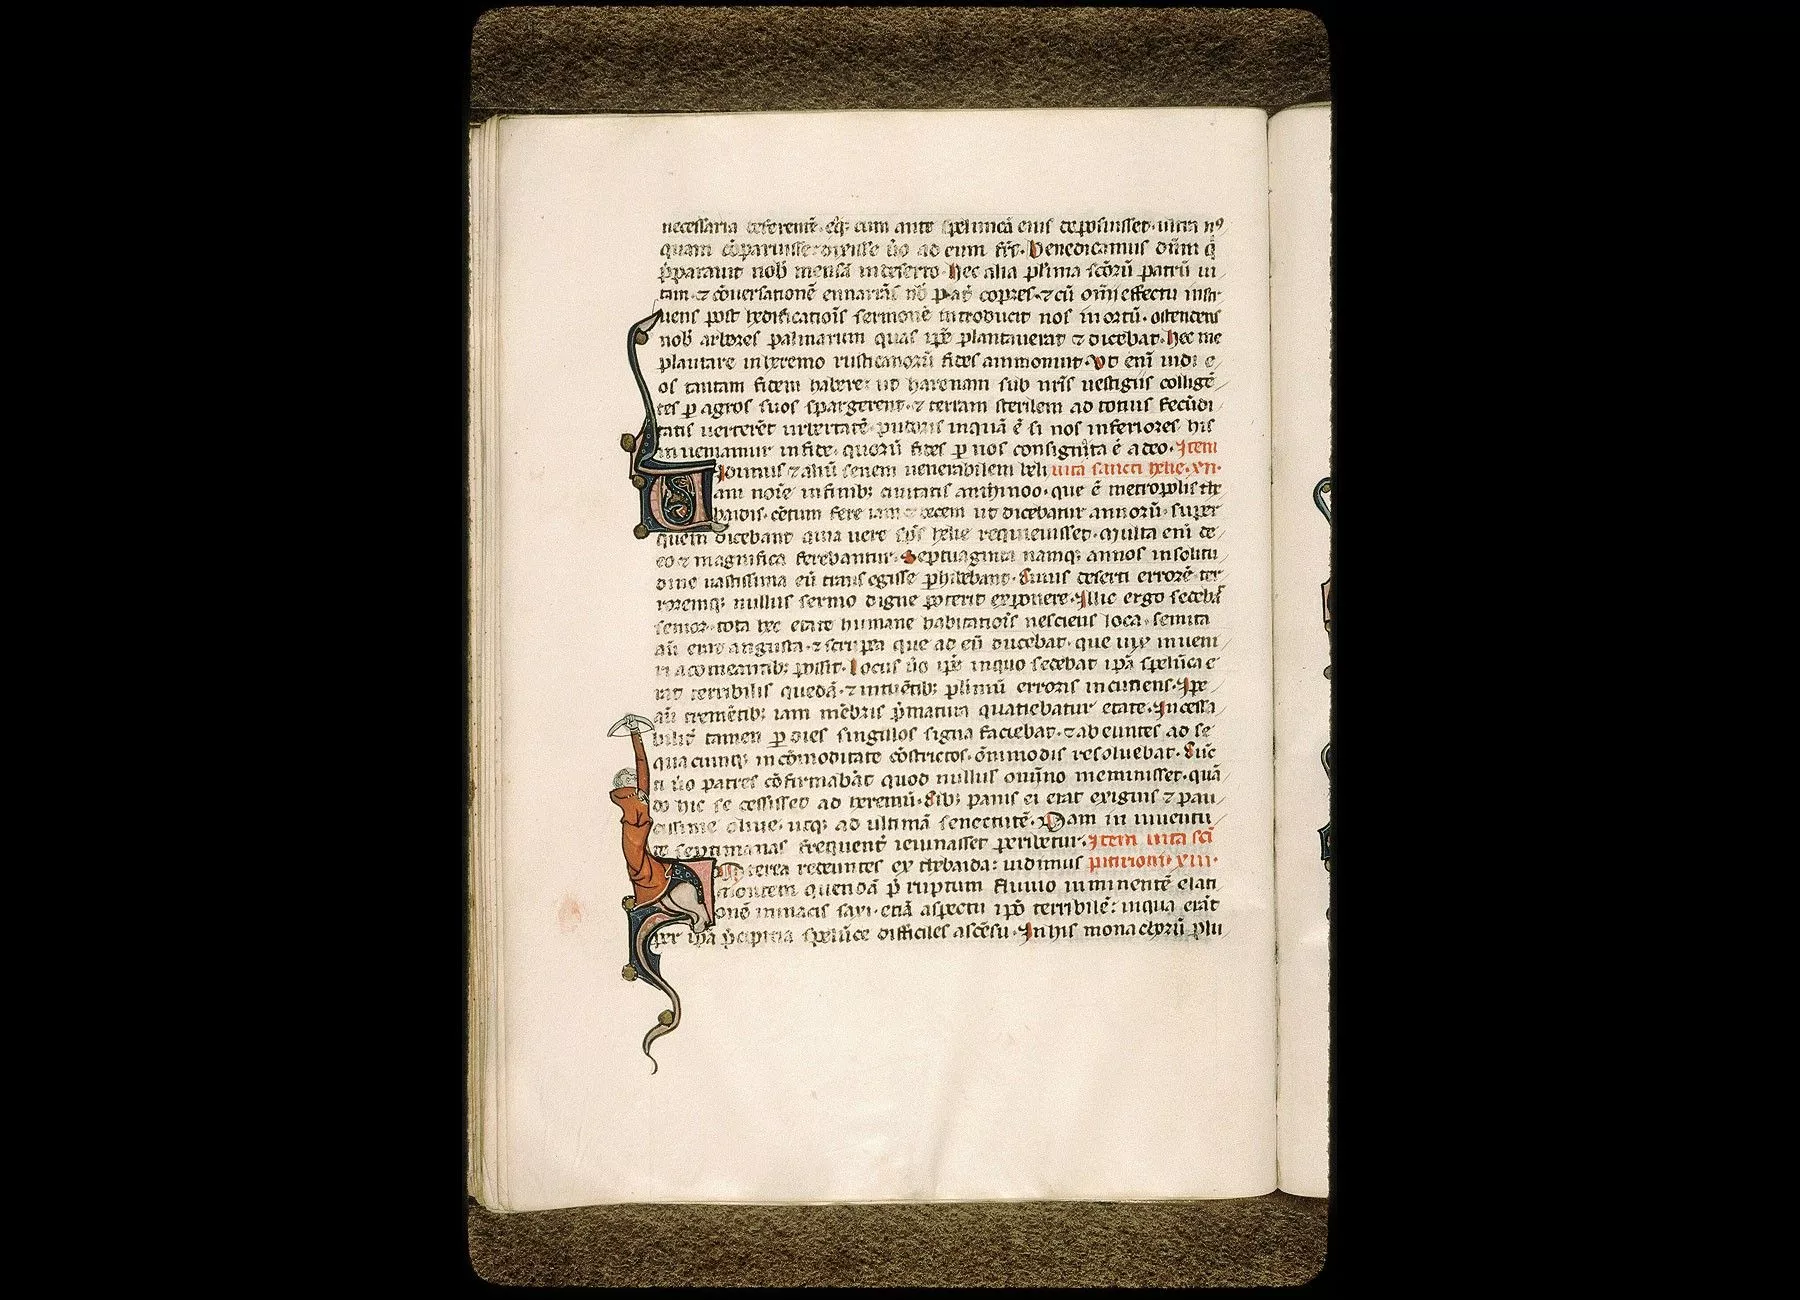 necessaria deferentē. eq; cum ante speluncā eius deposuisset. ultra nꝰ
quam cōparuisse. dixisse ūo ad eum fr̄s. Benedicamus dūm q̄
p̄parauit nob̄ mensā in deserto. Hec alia pl̄ima sc̄orū patrū ui
tam. ⁊ cōuersationē enarrās nob̄ pat̄ copres. ⁊ cū om̄i effectu instr
uens post hedificatiois̄ sermonē introducit nos in ortū. ostendens
nob̄ arbores palmarum quas ip̄e plantauerat ⁊ dicebat. Hec me
plantare in heremo rusticanorū fides ammonuit. Vt enī uidi e
os tantam fidem habere: ut harenam sub nr̄is uestigiis colligē
tes p agros suos spargerent. ⁊ terram sterilem ad totius fecūdi
tatis uerterēt uerbertatē. pudoris inquā ē si nos inferiores his
inueniamur in fide. quorū fides p nos consignata ē a deo. Item
Vidimus ⁊ aliū senem uenerabilem heli uita sancti helie. xii.
am noīe in finib; ciuitatis anthinoo. que ē metropolis the
baidis. cētum fere iam ⁊ decem ut dicebatur annorū. super
quem dicebant quia uere sps̄ helie requieuisset. Multa enī de
eo ⁊ magnifica ferebantur. Septuaginta namq; annos in solitu
dine uastissima eū transegisse phibebant. Cuius deserti errorē ter
roremq; nullus sermo digne poterit exponere. Illic ergo sedebā
senior. tota hec etate humane habitatiois̄ nesciens loca. semita
aū erat angusta. ⁊ scrupea que ad eū ducebat. que uix inueni
ri a comeantib; possit. Locus ūo ip̄e inquo sedebat ipā spelūca e
rat terribilis quedā. ⁊ intuētib; plimū erroris incutiens. Ipe
aū trementib; iam mēbris p̄matura quatiebatur etate. Incessa
bilit̄ tamen p dies singulos signa faciebat. ⁊ abeuntes ad se
quacunq; incōmoditate cōstrictos. ōnimodis resoluebat. Sūc
ti ūo patres cōfirmabāt quod nullus omīno meminisset. quā
do hic secessisset ad heremū. Cib; panis ei erat exiguus ⁊ pau
cissime oliue. usq; ad ultimā senectutē. Nam in iuuentu
te septimanas frequent̄ ieiunasset peribetur. Item uita sc̄i
terea redeuntes ex thebaida: uidimus pitirioni. xiii.
montem quendā p̄ ruptum fluuio inminentē elati
onē minacis saxi. etiā aspectu ipō terribilē: inqua erāt
per ipā p̄cipitia spelūce difficiles ascēsu. In his monachorū plu